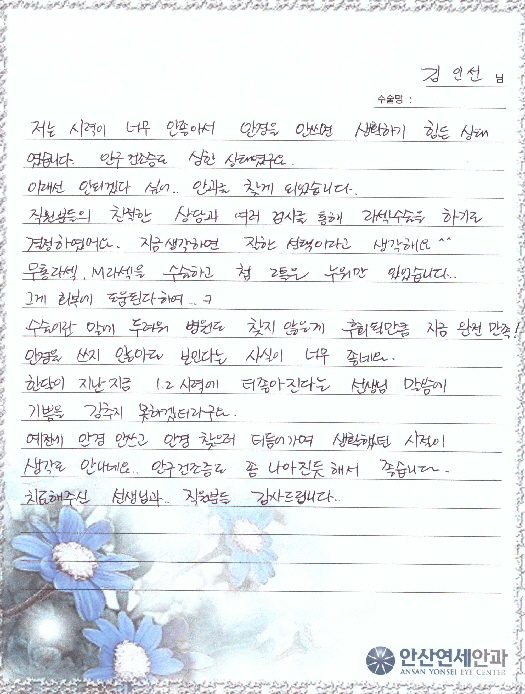 김인선 님
수술명 :
저는 시력이 너무 안좋아서 안경을 안쓰면 생활하기 힘든 상태
였습니다. 안구건조증도 심한 상태였구요.
이래선 안되겠다 싶어.. 안과를 찾게 되었습니다.
직원분들의 친절한 상담과 여러 검사를 통해 라섹수술을 하기로
결정하였어요. 지금 생각하면 잘한 선택이라고 생각해요 ^^
무통라섹, M라섹을 수술하고 첨 2틀은 누워만 있었습니다..
그게 회복에 도움된다하여.. ㅋ
수술이란 말에 두려워 병원도 찾지 않은게 후회될만큼 지금 완전 만족!
안경을 쓰지 않아도 보인다는 사실이 너무 좋네요.
한달이 지난 지금 1.2 시력에 더좋아진다는 선생님 말씀에
기쁨을 감추지 못하겠더라구요.
예전에 안경 안쓰고 안경 찾으러 더듬어가며 생활했던 시절이
생각도 안나네요.. 안구건조증도 좀 나아진듯 해서 좋습니다.
치료해주신 선생님과.. 직원분들 감사드립니다..
안산연세안과
ANSAN YONSEI EYE CENTER